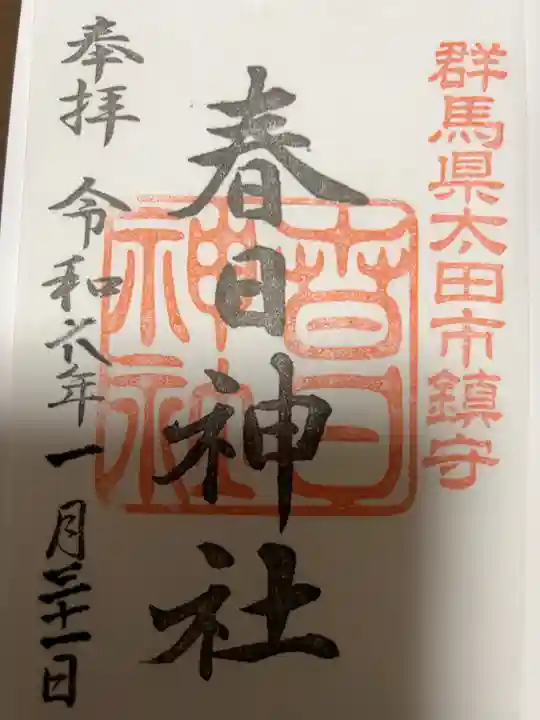 群馬県太田市鎮守
春日神社
春日神社
奉拝 令和六年一月三十一日